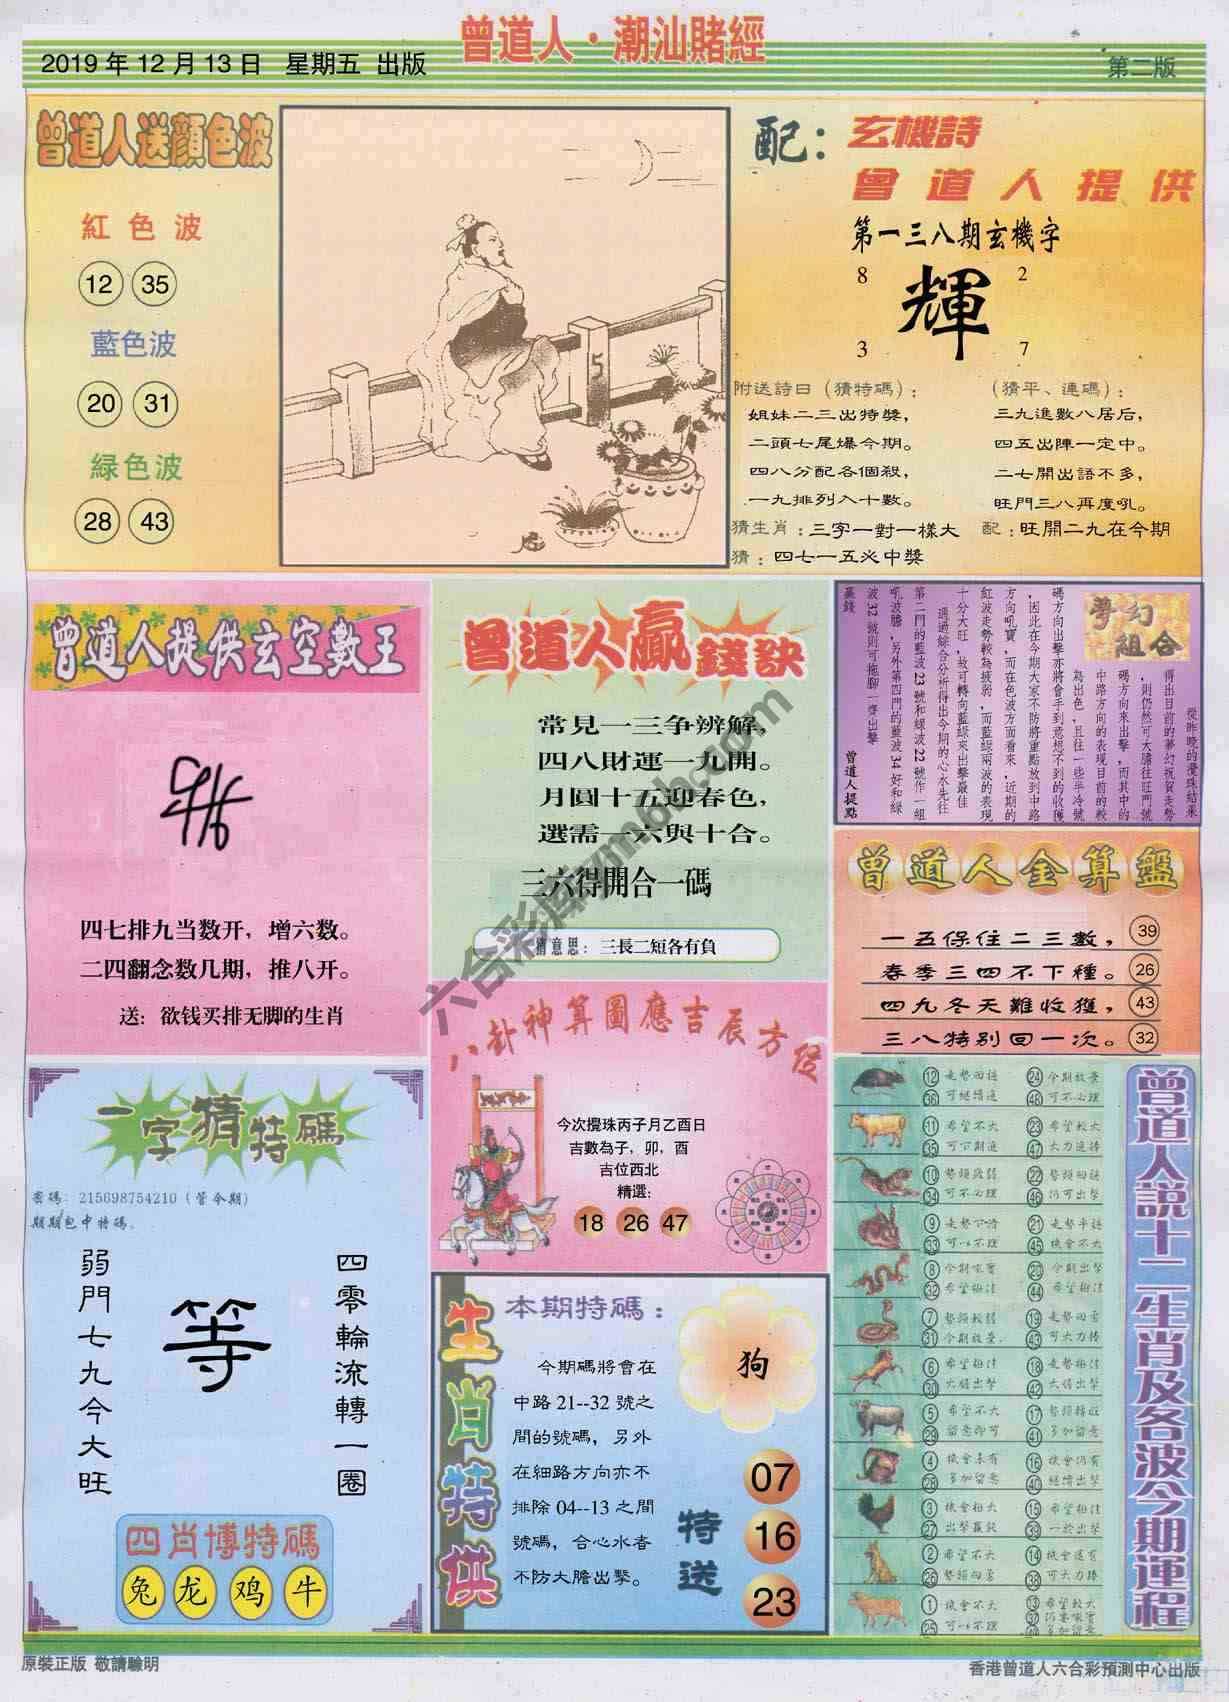 曾道人·潮汕賭經
2019年12月13日 星期五 出版
第二版
曾道人送顏色波
紅色波
12 35
藍色波
20 31
緑色波
28 43
5
配：玄機詩
曾道人提供
第一三八期玄機字
8 2
輝
3 7
附送詩曰（猜特碼）：
姐妹二三出特獎，
二頭七尾爆今期。
四八分配各個殺，
一九排列入十數。
（猜平、連碼）：
三九進數八居后，
四五出陣一定中。
二七開出語不多，
旺門三八再度吼。
猜生肖：三字一對一樣大
配：旺開二九在今期
猜：四七一五必中獎
曾道人提供玄空數王
四七排九当数开，增六数。
二四翻念数几期，推八开。
送：欲钱买排无脚的生肖
曾道人贏錢訣
常見一三争辨解，
四八財運一九開。
月圓十五迎春色，
選需一六與十合。
三六得開合一碼
猜意思：三長二短各有負
夢幻組合
從昨晚的攪珠結果
得出目前的夢幻祝賀走勢
，則仍然可大膽往旺門號
碼方向來出擊，而其中的
中路方向的表現目前的較
為出色，且往一些半冷號
碼方向出擊亦將會手到意想不到的收獲
，因此在今期大家不防將重點放到中路
方向吼寶，而在色波方面看來，近期的
紅波走勢較為疲弱，而藍綠兩波的表現
十分大旺，故可轉向藍綠來出擊最佳
通過綜合分析得出今期的心水先往
第二門的藍波23號和緑波22號作一組
吼波膽，另外第四門的藍波34好和綠
波32號則可拖腳一齊出擊
贏錢
曾道人提點
曾道人金算盤
一五保住二三數， 39
春季三四不下種。 26
四九冬天難收獲， 43
三八特别回一次。 32
八卦神算圖應吉辰方位
今次攪珠丙子月乙酉日
吉數為子，卯，酉
吉位西北
精選：
18 26 47
一字猜特碼
密碼：215698754210（管今期）
期期包中特碼。
四零輪流轉一圈
等
弱門七九今大旺
四肖博特碼
兔 龙 鸡 牛
生肖特供
本期特碼：
今期碼將會在
中路21--32號之
間的號碼，另外
在細路方向亦不
排除04--13之間
號碼，合心水者
不防大膽出擊。
狗
特送
07
16
23
曾道人説十二生肖及各波今期運程
12 36 走勢回穩 可繼續追
24 48 今期放棄 可不必理
11 35 希望不大 可下期追
23 47 希望較大 大力追捧
10 34 勢頭疲弱 可不必理
22 46 勢頭回穩 仍可出擊
9 33 走勢下滑 可以不理
21 45 走勢平穩 機會不大
8 32 今期吼實 希望極佳
20 44 今期出擊 希望極佳
7 31 勢頭較弱 今期放棄
19 43 走勢回勇 可大力捧
6 30 希望極佳 大膽出擊
18 42 走勢極佳 大膽出擊
5 29 希望不大 留意即可
17 41 勢頭精旺 多加留意
4 28 機會未有 多加留意
16 40 機會仍有 繼續出擊
3 27 機會極大 出擊贏錢
15 39 希望極佳 一於出擊
2 26 希望不大 勢頭回勇
14 38 機會還有 可大力捧
1 25 機會不大 可以不理
13 37 希望較大
多加留意
原裝正版 敬請驗明
香港曾道人六合彩預測中心出版
六合彩库7m6h.com